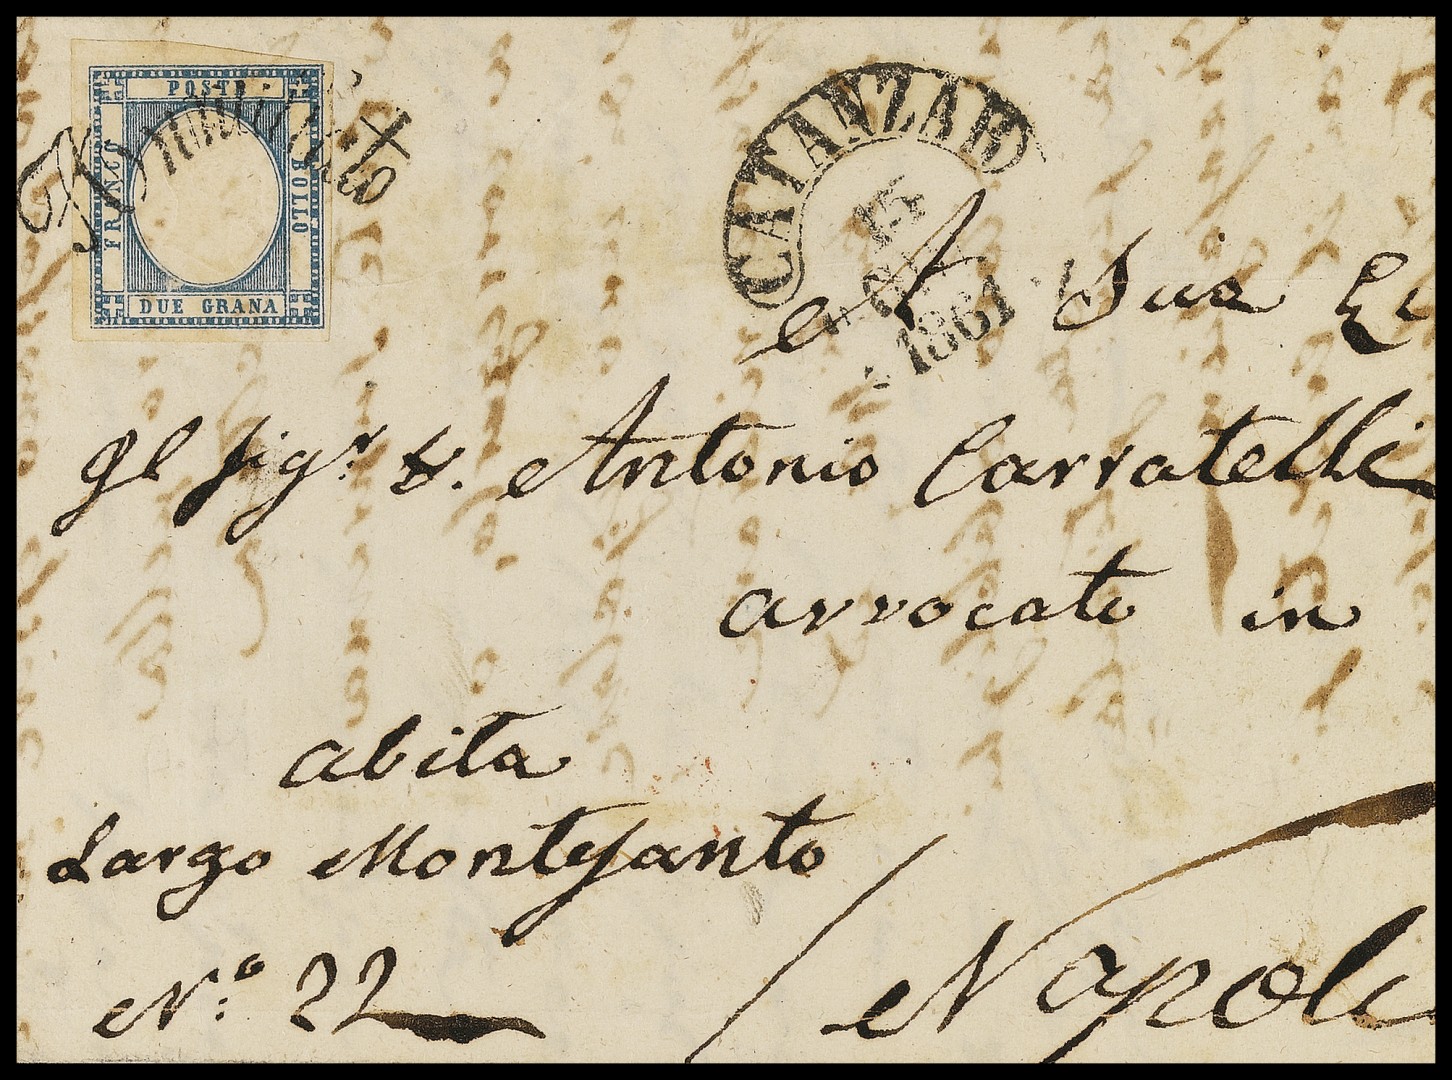 POSTE
FRANCO
BOLLO
DUE GRANA
Annullato
CATANZARO
15
1861
A Sua
Al Sigr D. Antonio Carratelli
avvocato in
abita
Largo Montesanto
No: 22
Napoli